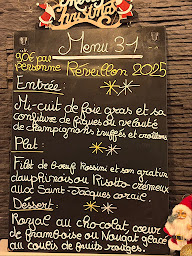 Christmas
Menu 31
90€ par
personne Réveillon 2025
Entrée:
Mi-cuit de foie gras et sa
confiture de figues ou velouté
de champignons truffés et croûtons
Plat:
Filet de bœuf Rossini et son gratin
dauphinois ou Risotto crémeux
aux Saint-Jacques corail.
Dessert:
Royal au chocolat cœur
de framboise ou Nougat glacé
au coulis de fruits rouges.